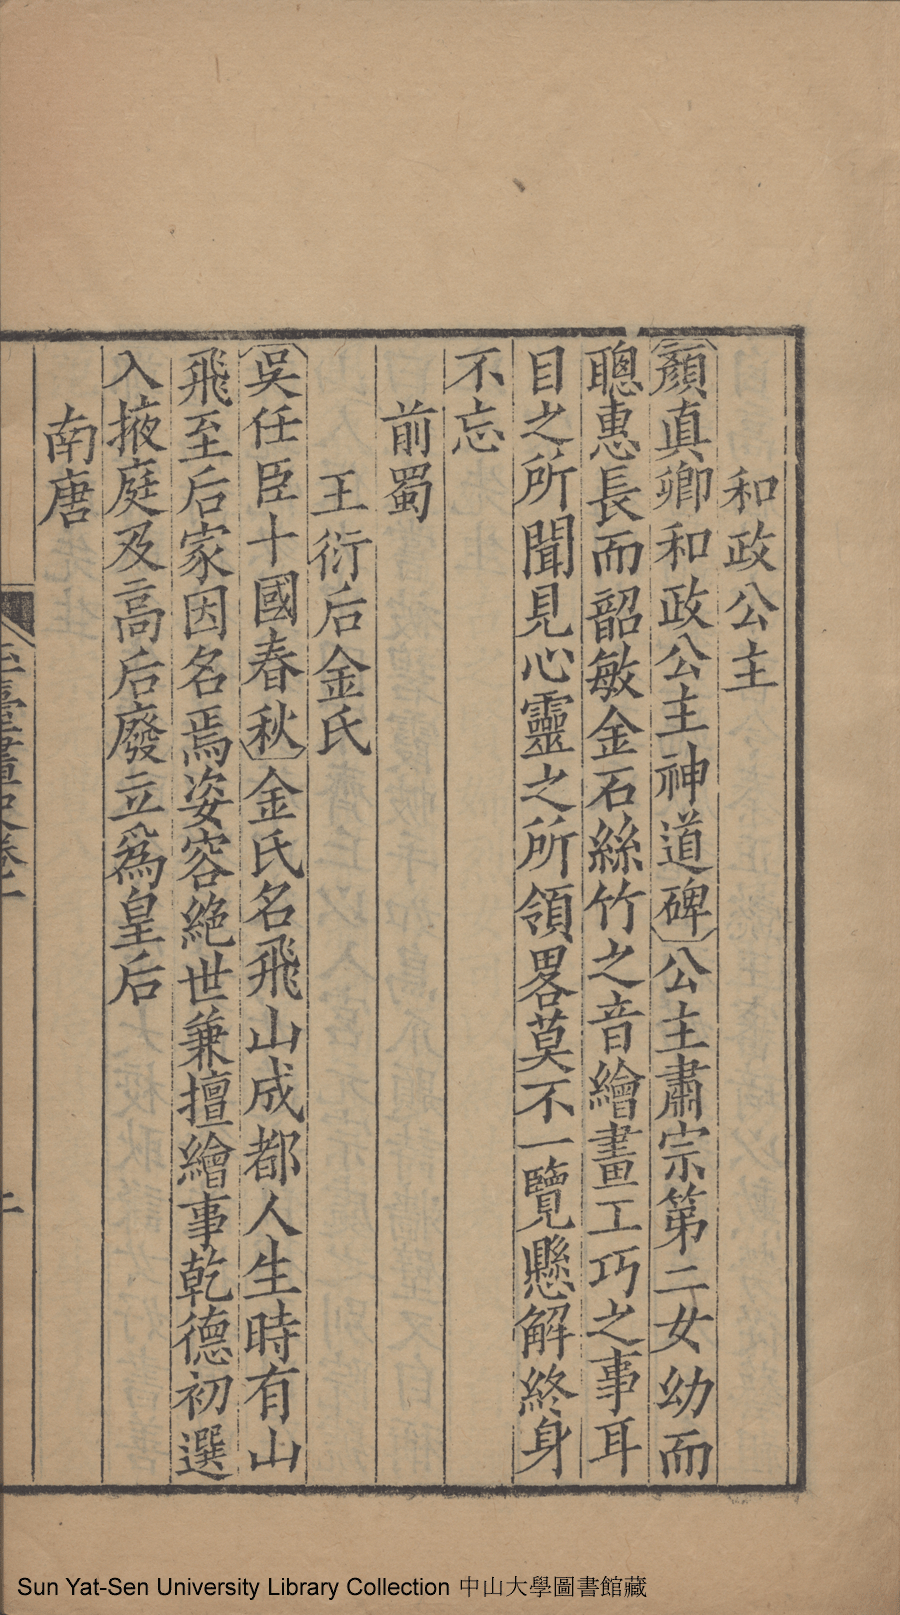 和政公主
〔顏真卿和政公主神道碑〕公主肅宗第二女幼而
聰惠長而韶敏金石絲竹之音繪畫工巧之事耳
目之所聞見心靈之所領畧莫不一覽懸解終身
不忘
前蜀
王衍后金氏
〔吳任臣十國春秋〕金氏名飛山成都人生時有山
飛至后家因名焉姿容絕世兼擅繪事乾德初選
入掖庭及高后廢立爲皇后
南唐
玉臺畫史卷一
Sun Yat-Sen University Library Collection 中山大學圖書館藏